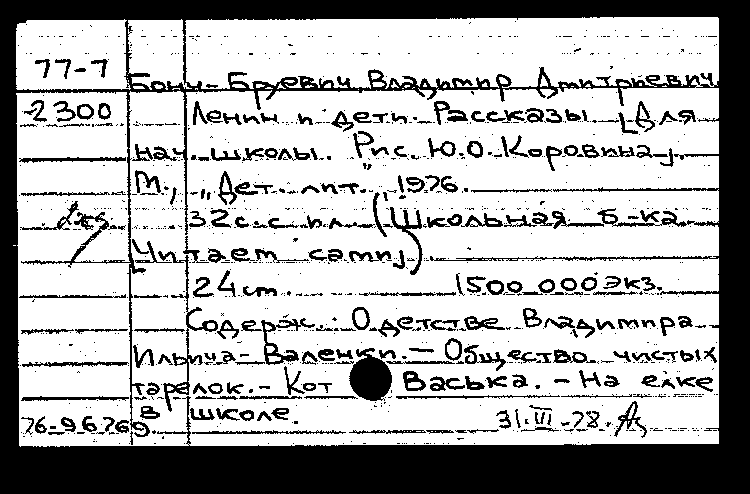 77-7
Бонч-Бруевич, Владимир Дмитриевич.
2300
Ленин и дети. Рассказы [Для
нач. школы. Рис. Ю.О. Коровина].
М., "Дет. лит.", 1976.
2 экз
32 с. с ил. (Школьная б-ка
[Читаем сами])
24 см. 1500 000 экз.
Содерж.: О детстве Владимира
Ильича - Валенки. - Общество чистых
тарелок. - Кот Васька. - На елке
в школе.
76-96769 31.III-78.